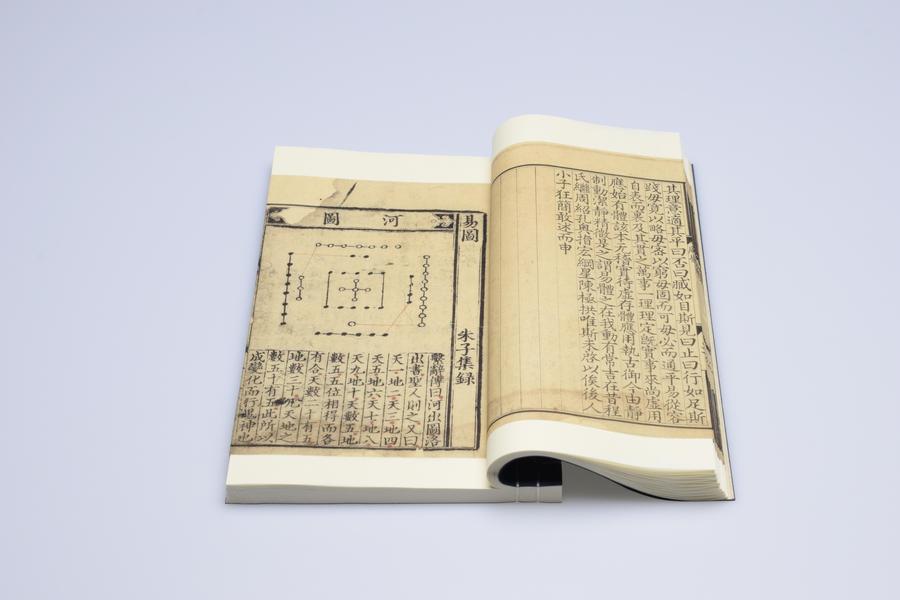 其理意適其平曰否曰臧如目斯見曰止曰行如足斯
踐毋寬以略毋密以窮毋固而可毋必而通平易從容
自表而裏及其貫之萬事一理理定既實事來尚虛用
應始有體該本无稽實待虛存體應用執古御今由靜
制動潔靜精微是之謂易體之在我動有常吉在昔程
氏繼周紹孔奥指宏綱星陳極拱唯斯未啓以俟後人
小子狂簡敢述而申
易圖
朱子集録
河圖
繫辭傳曰河出圖洛
出書聖人則之又曰
天一地二天三地四
天五地六天七地八
天九地十天數五地
數五五位相得而各
有合天數二十有五
地數三十凡天地之
數五十有五此所以
成變化而行鬼神也